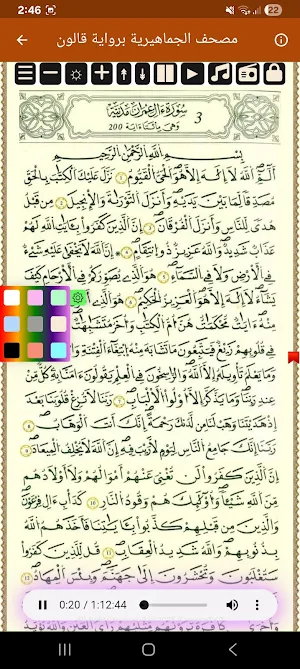 2:46
22
مصحف الجماهيرية برواية قالون
سورة ءال عمران مدنية
وهي مائتا ءاية 200
3
بسم الله الرحمن الرحيم
ألم الله لا إله إلا هو الحي القيوم نزل عليك الكتب بالحق
مصدقا لما بين يديه وأنزل التورية والإنجيل
هدى للناس وأنزل الفرقان إن الذين كفروا بئايت الله لهم
عذاب شديد والله عزيز ذو انتقام إن الله لا يخفى عليه شيء
في الأرض ولا في السماء هو الذي يصوركم في الأرحام كيف
يشاء لا إله إلا هو العزيز الحكيم هو الذي
منه ءايت محكمت هن أم الكتب وأخر متشبهت
في قلوبهم زيغ فيتبعون ما تشبه منه ابتغاء الفتنة
وما يعلم تأويله إلا الله والراسخون في العلم يقولون ءامنا به كل من
عند ربنا وما يذكر إلا أولوا الألبب ربنا لا تزغ قلوبنا بعد
إذ هديتنا وهب لنا من لدنك رحمة إنك أنت الوهاب
ربنا إنك جامع الناس ليوم لا ريب فيه إن الله لا يخلف الميعاد
إن الذين كفروا لن تغني عنهم أمولهم ولا أولدهم
من الله شيئا وأولئك هم وقود النار كدأب ءال فرعون
والذين من قبلهم كذبوا بئايتنا فأخذهم الله
بذنوبهم والله شديد العقاب قل للذين كفروا
ستغلبون وتحشرون إلى جهنم وبئس المهاد
0:20 / 1:12:44